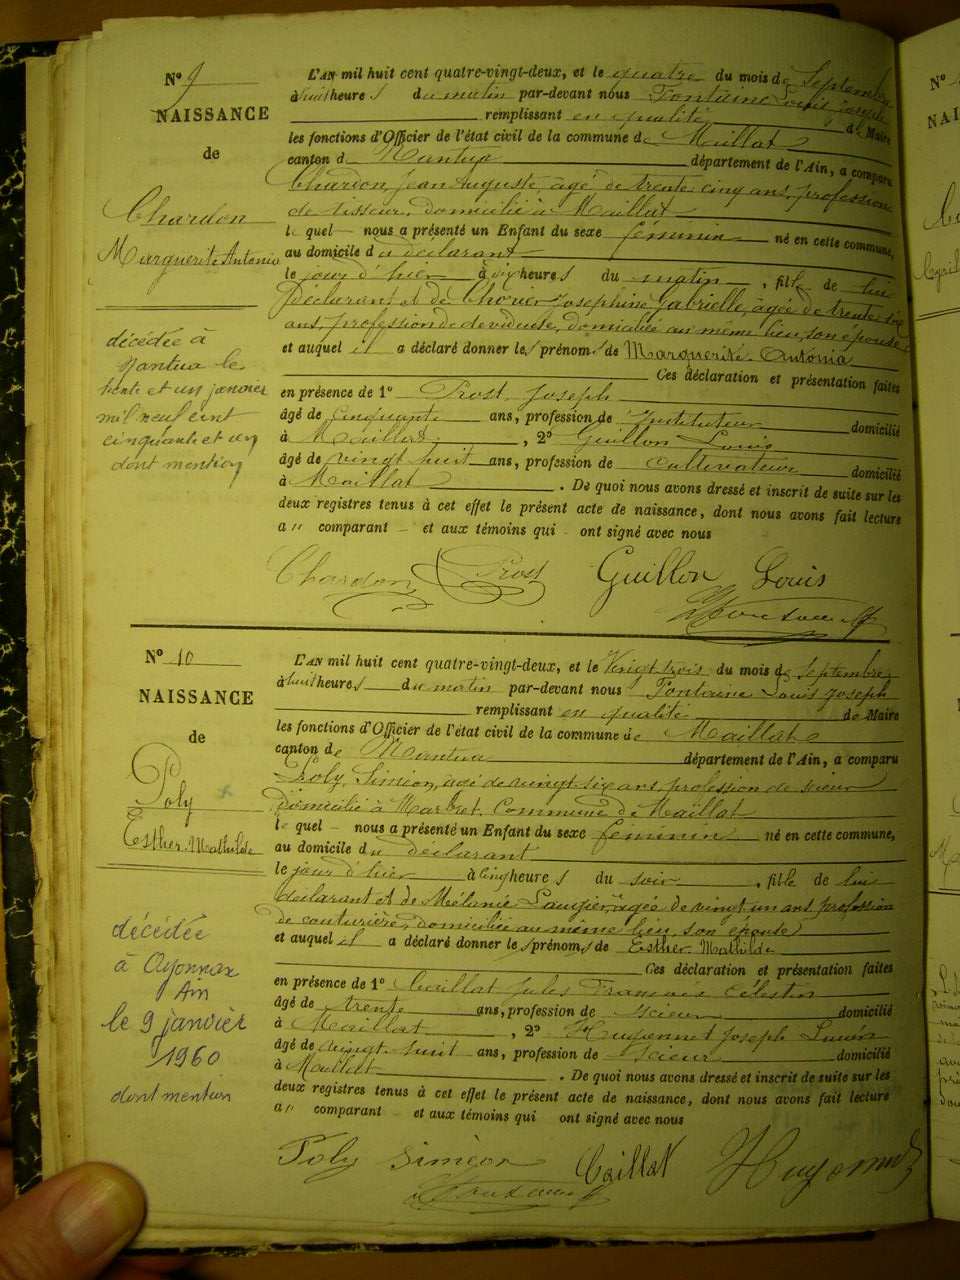 N° 9
NAISSANCE
de
Chardon
Marguerite Antonia
décédée à
Nantua le
trente et un janvier
mil neuf cent
cinquante et un
dont mention
L'AN mil huit cent quatre-vingt-deux, et le quatre du mois de Septembre
à huit heures du matin par-devant nous Fontaine Louis Joseph
remplissant en qualité de Maire
les fonctions d'Officier de l'état civil de la commune de Maillat
canton de Nantua département de l'Ain, a comparu
Chardon, Jean Auguste, âgé de trente cinq ans, profession
de tisseur, domicilié à Maillat
lequel nous a présenté un Enfant du sexe féminin né en cette commune,
au domicile du déclarant
le jour d'hier à dix heures du matin, fille de lui
déclarant et de Josephine Gabrielle, âgée de trente six
ans, profession de devideuse, domiciliée au même lieu, son épouse
et auquel il a déclaré donner les prénoms de Marguerite Antonia
Ces déclaration et présentation faites
en présence de 1° Prost Joseph
âgé de cinquante ans, profession de Instituteur domicilié
à Maillat, 2° Guillon Louis
âgé de vingt huit ans, profession de cultivateur domicilié
à Maillat. De quoi nous avons dressé et inscrit de suite sur les
deux registres tenus à cet effet le présent acte de naissance, dont nous avons fait lecture
a " comparant et aux témoins qui ont signé avec nous
Chardon Prost Guillon Louis
N° 10
NAISSANCE
de
Poly
Esther. Mathilde
décédée
à Oyonnax
Ain
le 9 janvier
1960
dont mention
L'AN mil huit cent quatre-vingt-deux, et le vingt trois du mois de Septembre
à huit heures du matin par-devant nous Fontaine Louis Joseph
remplissant en qualité de Maire
les fonctions d'Officier de l'état civil de la commune de Maillat
canton de Nantua département de l'Ain, a comparu
Poly, Siméon, agé de vingt-six ans profession de scieur
domicilié à Commune de Maillat
lequel nous a présenté un Enfant du sexe féminin né en cette commune,
au domicile du déclarant
le jour d'hier à cinq heures du soir, fille de lui
déclarant et de Mélanie Laugier, âgée de vingt un ans profession
de couturière, domiciliée au même lieu, son épouse
et auquel il a déclaré donner les prénoms de Esther. Mathilde
Ces déclaration et présentation faites
en présence de 1° Caillat Jules François Célestin
âgé de trente ans, profession de scieur domicilié
à Maillat, 2° Huyonnet Joseph
âgé de vingt huit ans, profession de scieur domicilié
à Maillat. De quoi nous avons dressé et inscrit de suite sur les
deux registres tenus à cet effet le présent acte de naissance, dont nous avons fait lecture
a " comparant et aux témoins qui ont signé avec nous
Poly Siméon Caillat